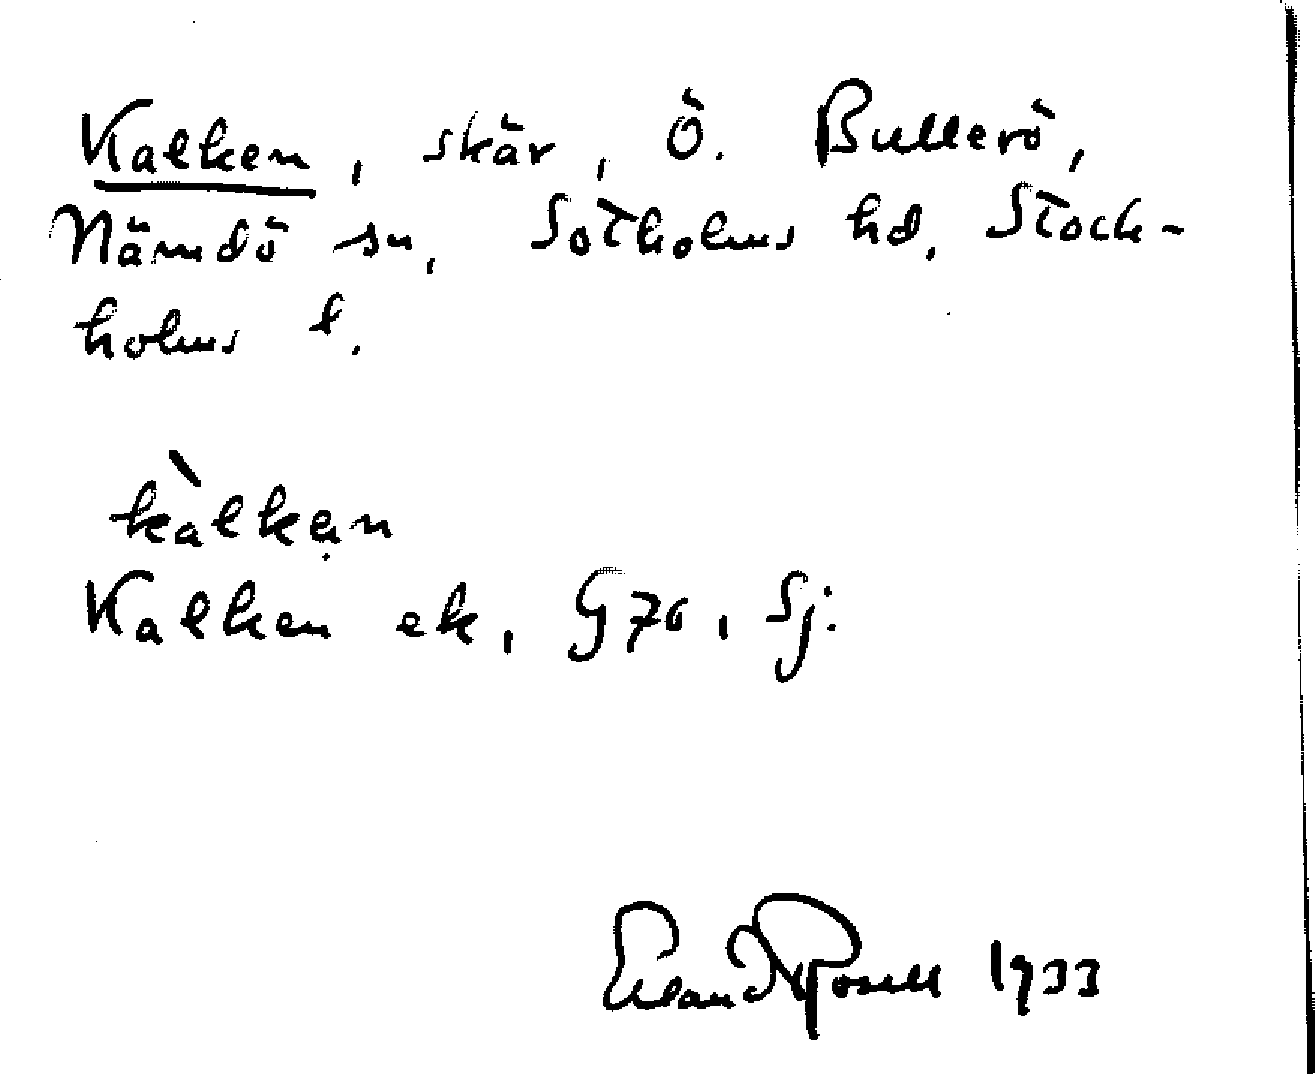 Kalken, skär, Ö. Bullerö,
Nämdö sn, Sotholms hd, Stock-
holms l.
kàlkȧn
Kalken ek, G76, Sj.
Erland Rosell 1933